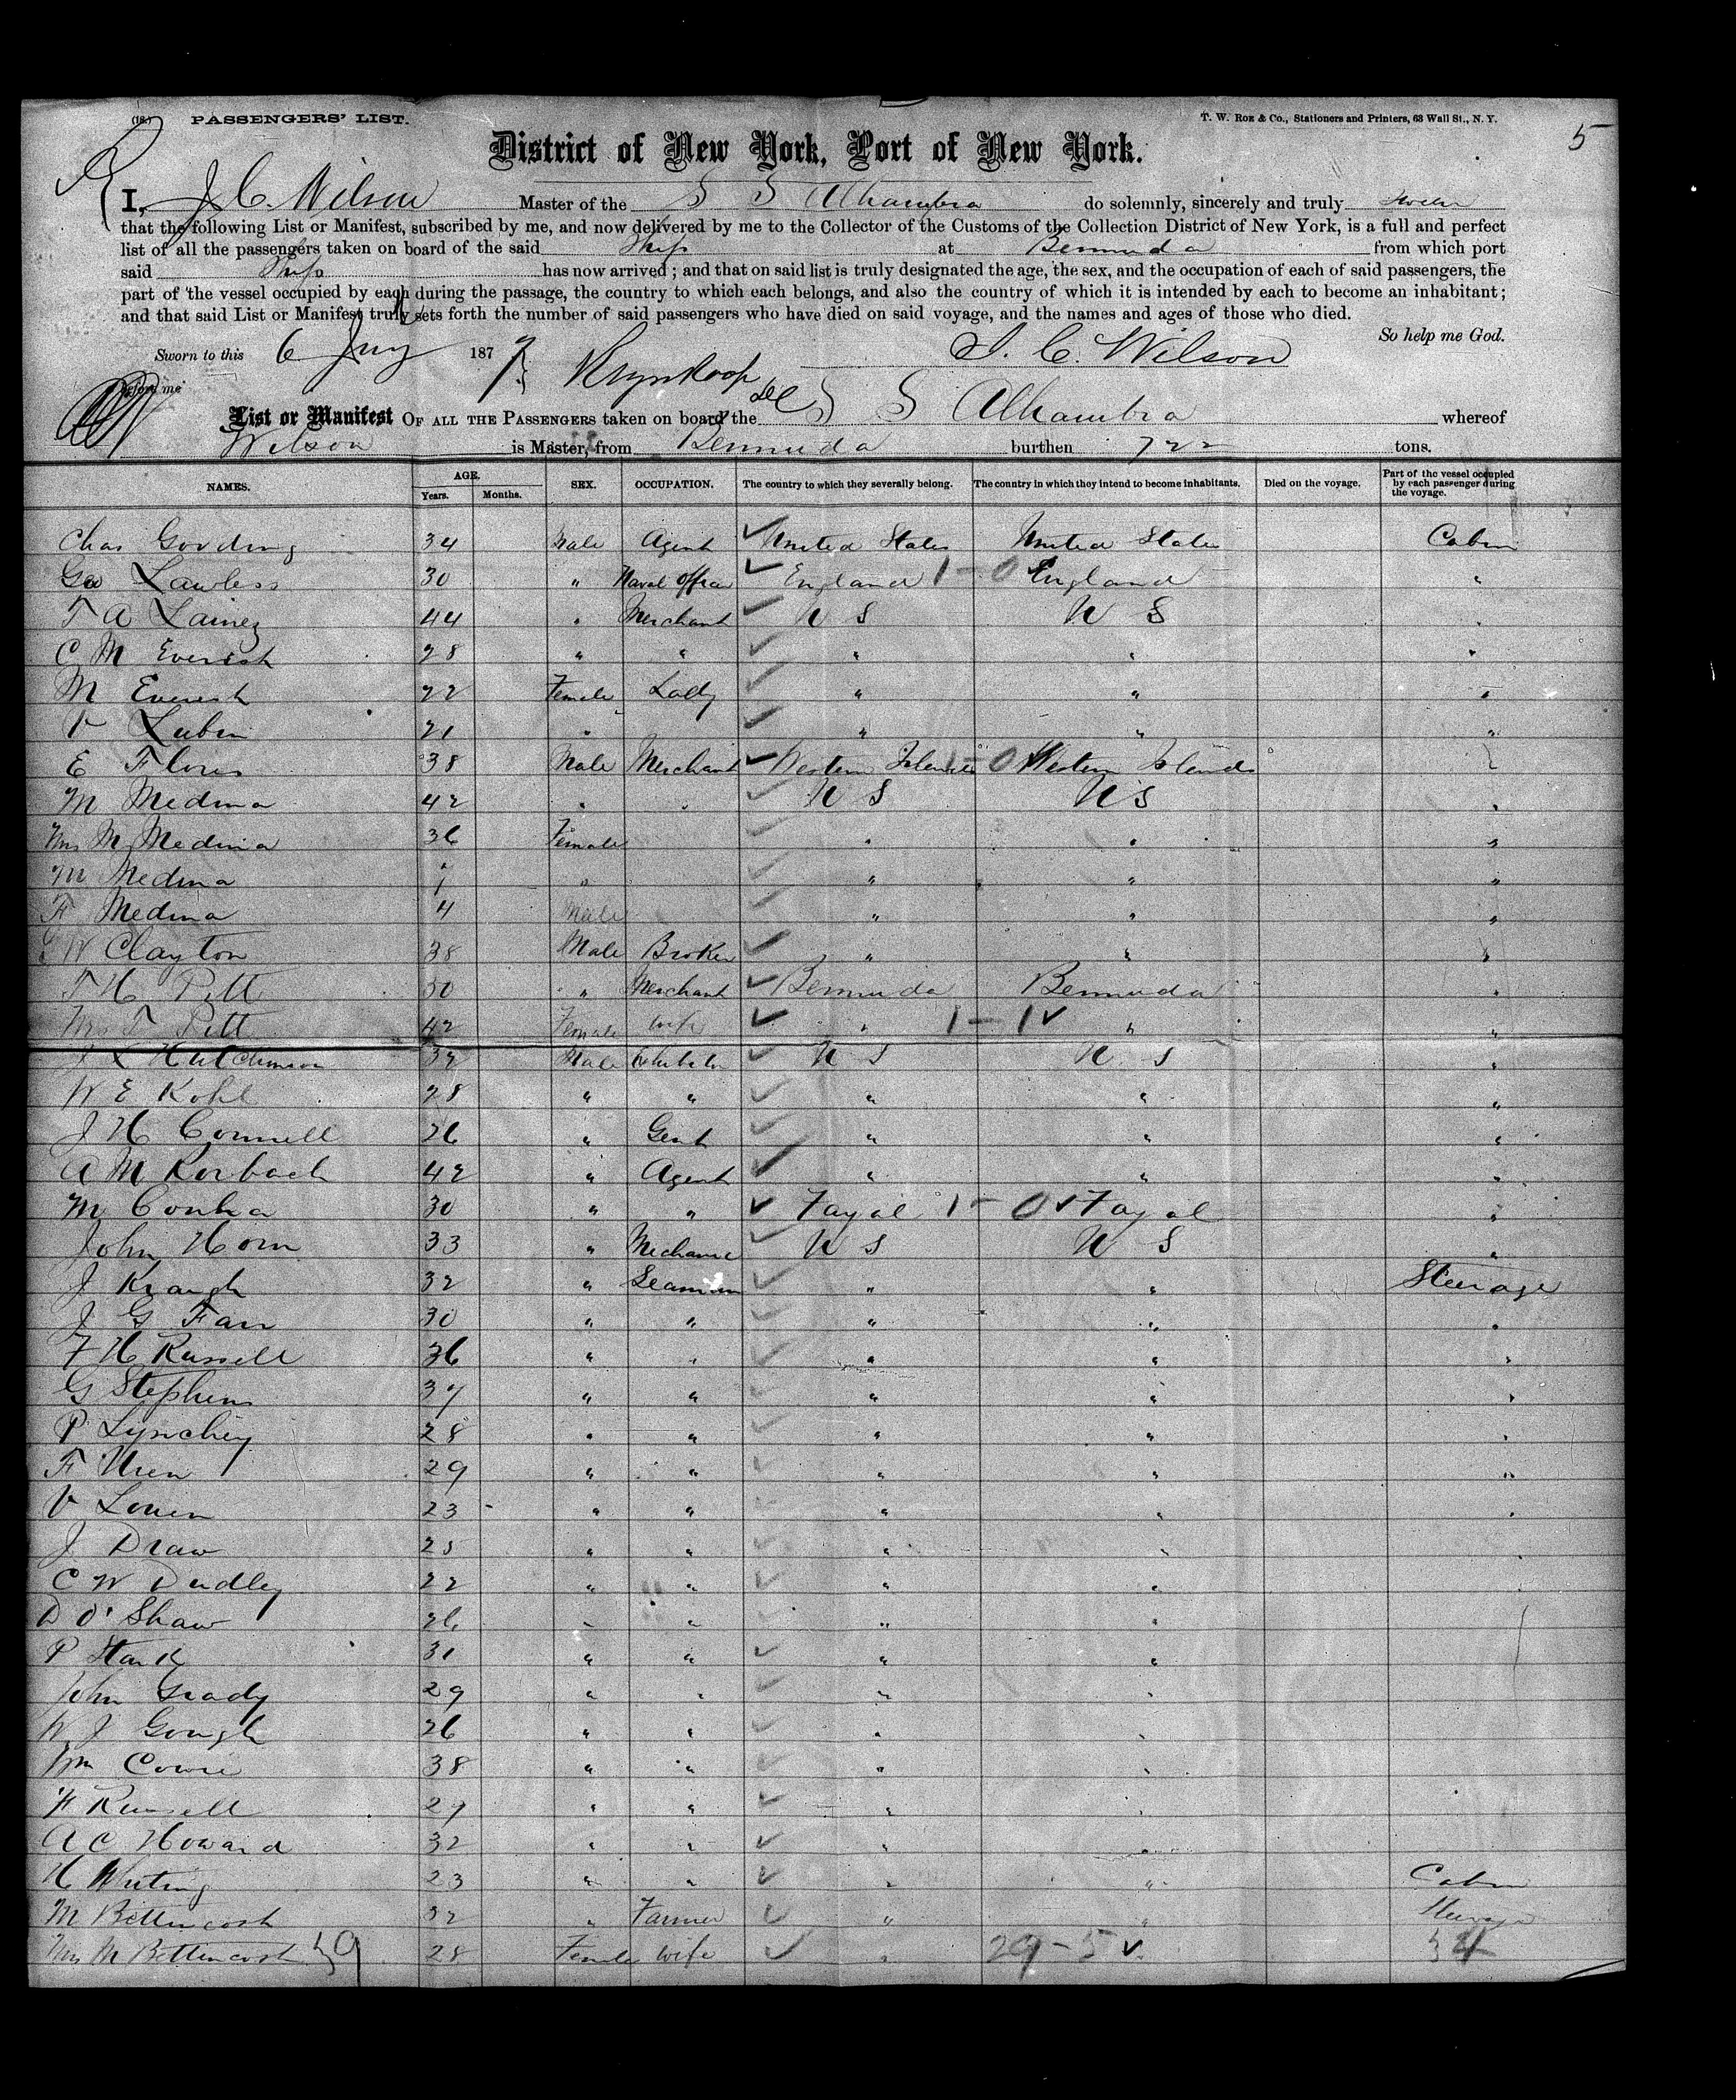 (18.) PASSENGERS' LIST. T. W. Roe & Co., Stationers and Printers, 63 Wall St., N. Y.
5
District of New York, Port of New York.
I, J C. Wilson Master of the S S Alhambra do solemnly, sincerely and truly swear
that the following List or Manifest, subscribed by me, and now delivered by me to the Collector of the Customs of the Collection District of New York, is a full and perfect
list of all the passengers taken on board of the said Ship at Bermuda from which port
said Ship has now arrived; and that on said list is truly designated the age, the sex, and the occupation of each of said passengers, the
part of the vessel occupied by each during the passage, the country to which each belongs, and also the country of which it is intended by each to become an inhabitant;
and that said List or Manifest truly sets forth the number of said passengers who have died on said voyage, and the names and ages of those who died.
So help me God.
Sworn to this 6 187 J. C. Wilson
before me
List or Manifest OF ALL THE PASSENGERS taken on board the S S Alhambra whereof
Wilson is Master, from Bermuda burthen 722 tons.
NAMES. AGE. Years. Months. SEX. OCCUPATION. The country to which they severally belong. The country in which they intend to become inhabitants. Died on the voyage. Part of the vessel occupied by each passenger during the voyage.
Chas Gooding 34 Male Agent United States United States Cabin
Geo Lawless 30 " Naval Officer England 1-0 England "
T A Lainez 44 " Merchant U S U S "
C M Everish 28 " " " " "
M Everish 22 Female Lady " " "
V Lubin 21 " " " "
E Flores 38 Male Merchant Western Islands 1-0 Western Islands "
M Medina 42 " " U S U S "
Mrs M Medina 36 Female " " "
M Medina 1 " " " "
F Medina 4 Male " " "
W Clayton 38 Male Broker " " "
T H Pitt 30 " Merchant Bermuda Bermuda "
Mrs T Pitt 42 Female wife " 1-1 "
J L Hutchinson 32 Male U S U S "
W E Kohl 28 " " " " "
J H Connell 26 " Gent " " "
A M Rorbach 42 " Agent " " "
M Conha 30 " " Fayal 1-0 Fayal "
John Horn 33 " Mechanic U S U S "
J Kraugh 32 " Seaman " " Steerage
J G Farr 30 " " " " "
F H Russell 36 " " " " "
G Stephens 37 " " " " "
P Lynchey 28 " " " " "
F Uren 29 " " " " "
V Louen 23 " " " " "
J Draw 25 " " " " "
C W Dudley 22 " " " "
D O'Shaw 26 " " " "
P Stark 31 " " " "
John Grady 29 " " " "
W J Gough 26 " " " "
Wm Cowie 38 " " " "
H Russell 27 " " " "
A C Howard 32 " " "
H Whiting 23 " " " " Cabin
M Bettencosh 32 " Farmer " " Steerage
Mrs M Bettencosh 39 28 Female wife " 29-5 34